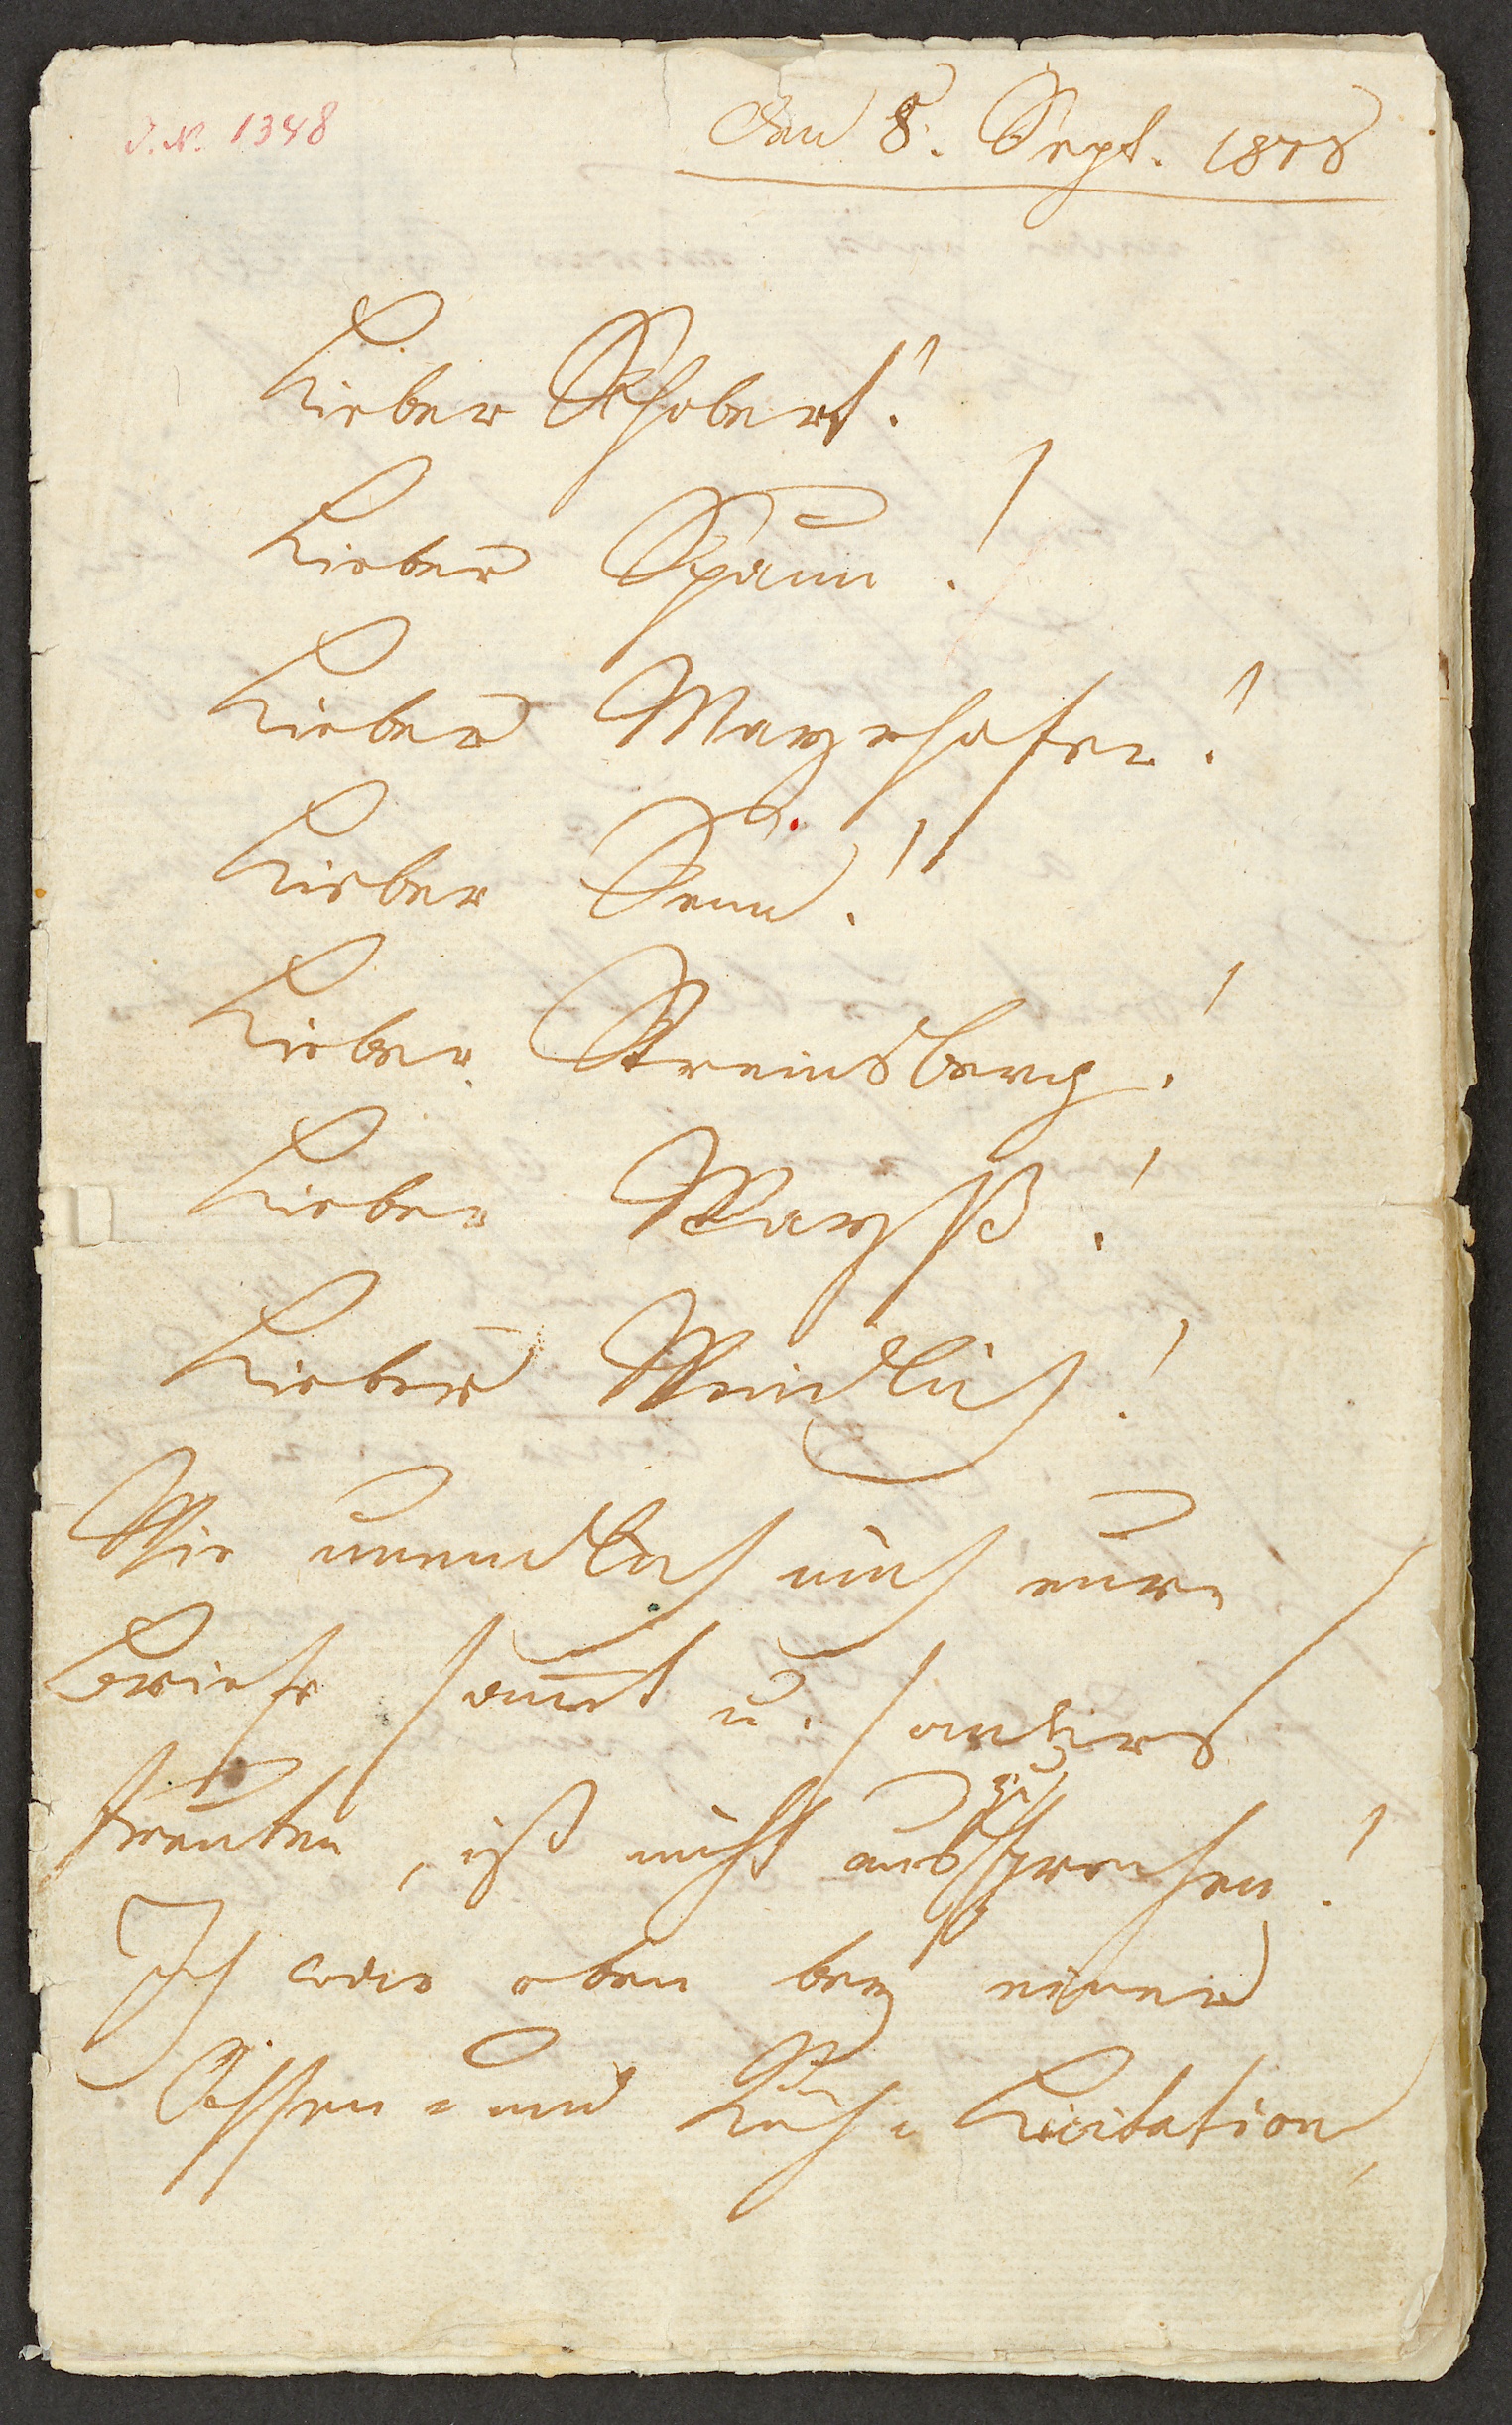 J. N. 1348
Den 8. Sept. 1818
Lieber Schobert!
Lieber Spaun!
Lieber Mayrhofer!
Lieber Senn!
Lieber Streinsberg!
Lieber Wayß!
Lieber Weidlich!
Wie unendlich mich eure
Briefe sammt u. sonders
freuten, ist nicht auszusprechen!
Ich war eben bey einer
Ochsen- und Kuh-Licitation,